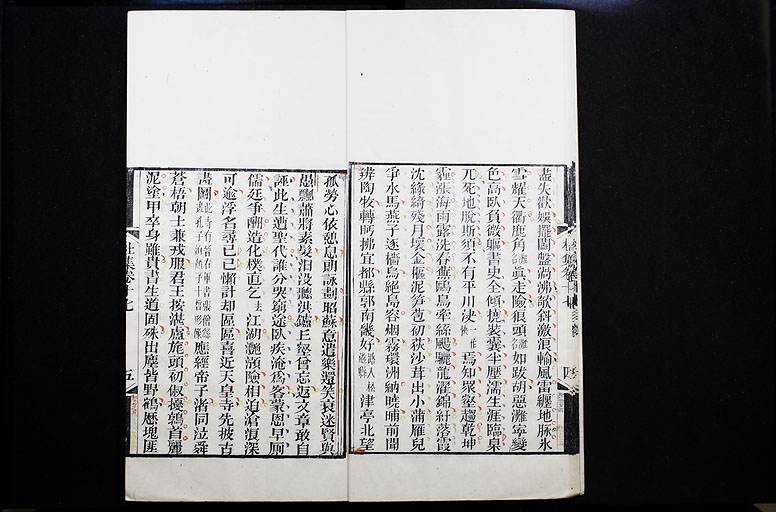 盡失歡娛擺闔盤渦沸欹斜激浪輸風雷纏地脉冰
雪耀天衢鹿角眞走險狼頭如跋胡惡灘寧變
色高臥負微軀書史全傾撓裝囊半壓濡生涯臨臬
兀死地脫斯須不有平川決焉知衆壑趨乾坤
霾漲海雨露洗春蕪鷗鳥牽絲颺驪龍濯錦紆落霞
沈綠綺殘月壞金樞泥笋苞初荻沙茸出小蒲雁兒
爭水馬燕子逐檣烏絕島容烟霧環洲納曉晡前聞
辨陶牧轉眄拂宜都縣郭南畿好津亭北望
孤勞心依憩息朗詠劃昭蘇意遣樂還笑衰迷賢與
愚飄蕭將素髮汨沒聽洪鑪丘壑曾忘返文章敢自
誣此生遭聖代誰分哭窮途臥疾淹爲客蒙恩早厠
儒廷爭酬造化樸直乞江湖灔澦險相迫滄浪深
可逾浮名尋已已懶計却區區喜近天皇寺先披古
畫圖應經帝子渚同泣舜
蒼梧朝士兼戎服君王按湛盧旄頭初俶擾鶉首麗
泥塗甲卒身雖貴書生道固殊出塵皆野鶴歷塊匪
杜集卷十七